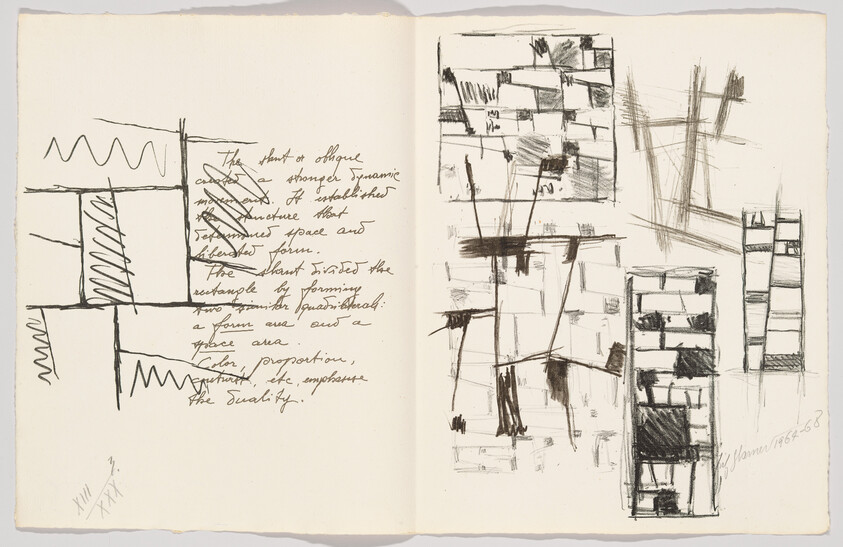 The slant or oblique
created a stronger dynamic
movement. It established
the structure that
determined space and
liberated form.
The slant divided the
rectangle by forming
two similar quadrilaterals:
a form area and a
space area.
Color, proportion,
etc. emphasise
the duality.
3.
XIII
XXX
Glarner 1964-68